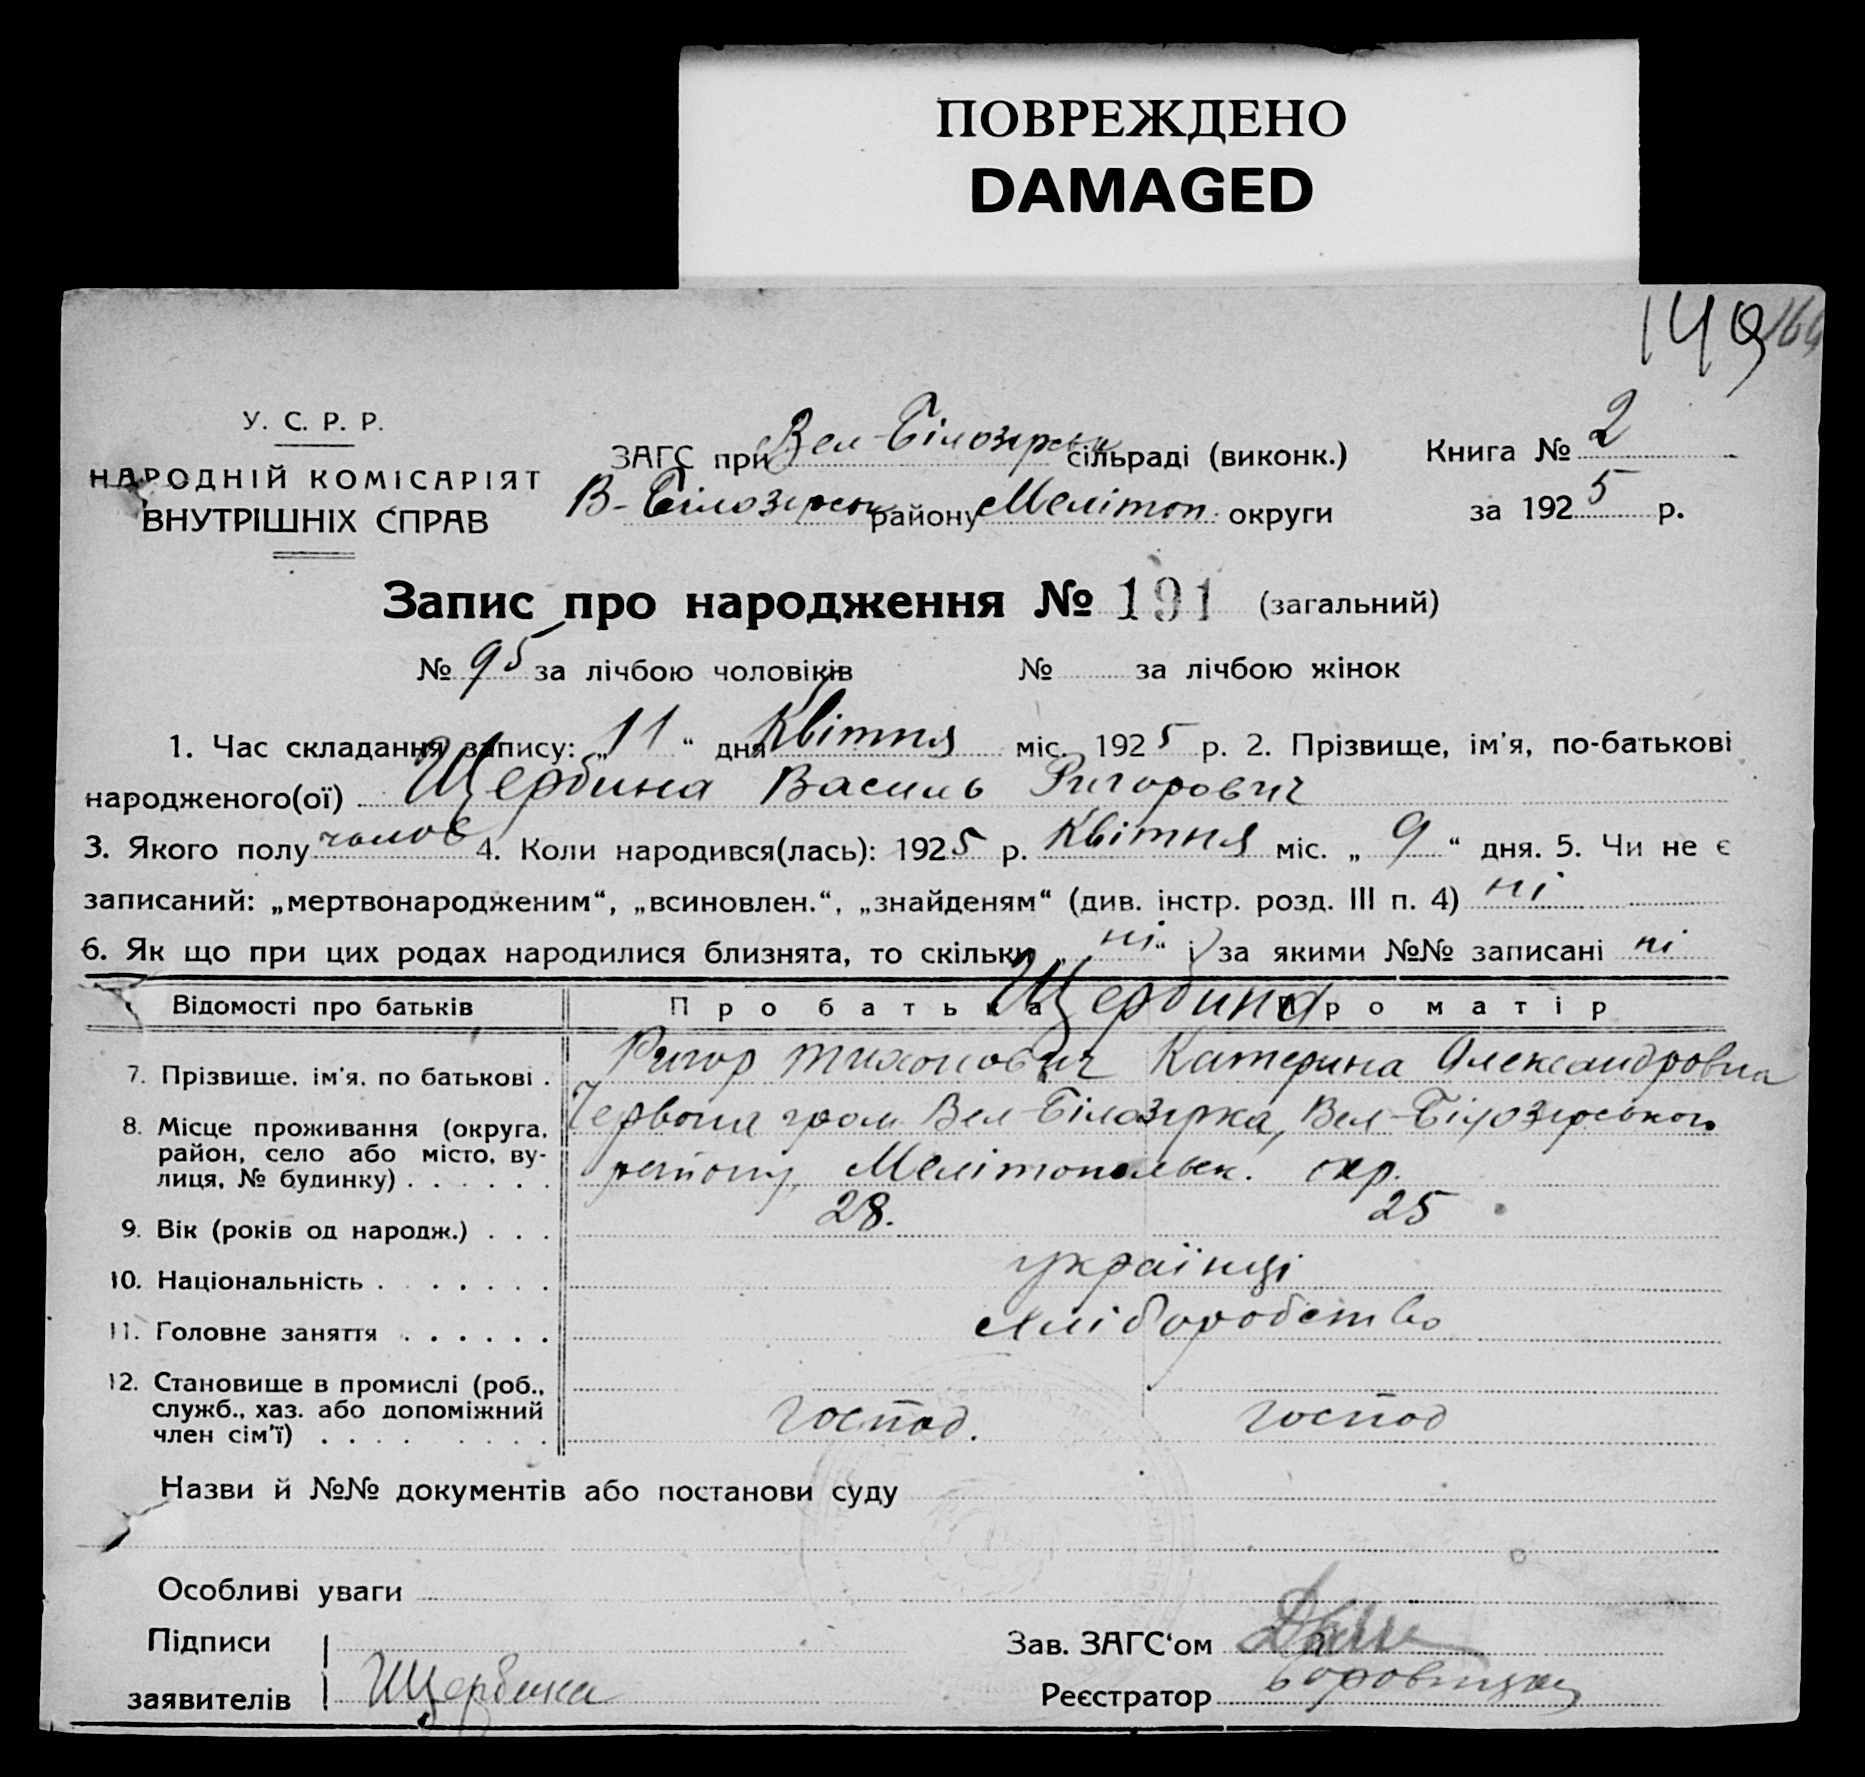 ПОВРЕЖДЕНО
DAMAGED
149 164
У. С. Р. Р.
НАРОДНІЙ КОМІСАРІЯТ
ВНУТРІШНІХ СПРАВ
ЗАГС при Вел-Білозірськ сільраді (виконк.) Книга № 2
В-Білозірськ району Мелітоп. округи за 1925 р.
Запис про народження № 191 (загальний)
№ 95 за лічбою чоловіків № за лічбою жінок
1. Час складання запису: „11“ дня Квітня міс. 1925 р. 2. Прізвище, ім'я, по-батькові
народженого(ої) Щербина Василь Ригорович
3. Якого полу чолов 4. Коли народився(лась): 1925 р. Квітня міс. „9“ дня. 5. Чи не є
записаний: „мертвонародженим“, „всиновлен.“, „знайденям“ (див. інстр. розд. III п. 4) ні
6. Як що при цих родах народилися близнята, то скільки „ні“ і за якими №№ записані ні
Відомості про батьків Про батька Про матір
Щербина
7. Прізвище, ім'я, по батькові . Ригор Тихонович Катерина Олександровна
8. Місце проживання (округа, район, село або місто, вулиця, № будинку) . . . . . . Червона гром. Вел-Білозірка, Вел-Білозірського
району, Мелітопольськ. окр.
9. Вік (років од народж.) . . . 28. 25
10. Національність . . . . . . . українці
11. Головне заняття . . . . . . хліборобство
12. Становище в промислі (роб., служб., хаз. або допоміжний член сім'ї) . . . . . . . . господ. господ
Назви й №№ документів або постанови суду
Особливі уваги
Підписи
заявителів Щербина
Зав. ЗАГС‘ом
Реєстратор